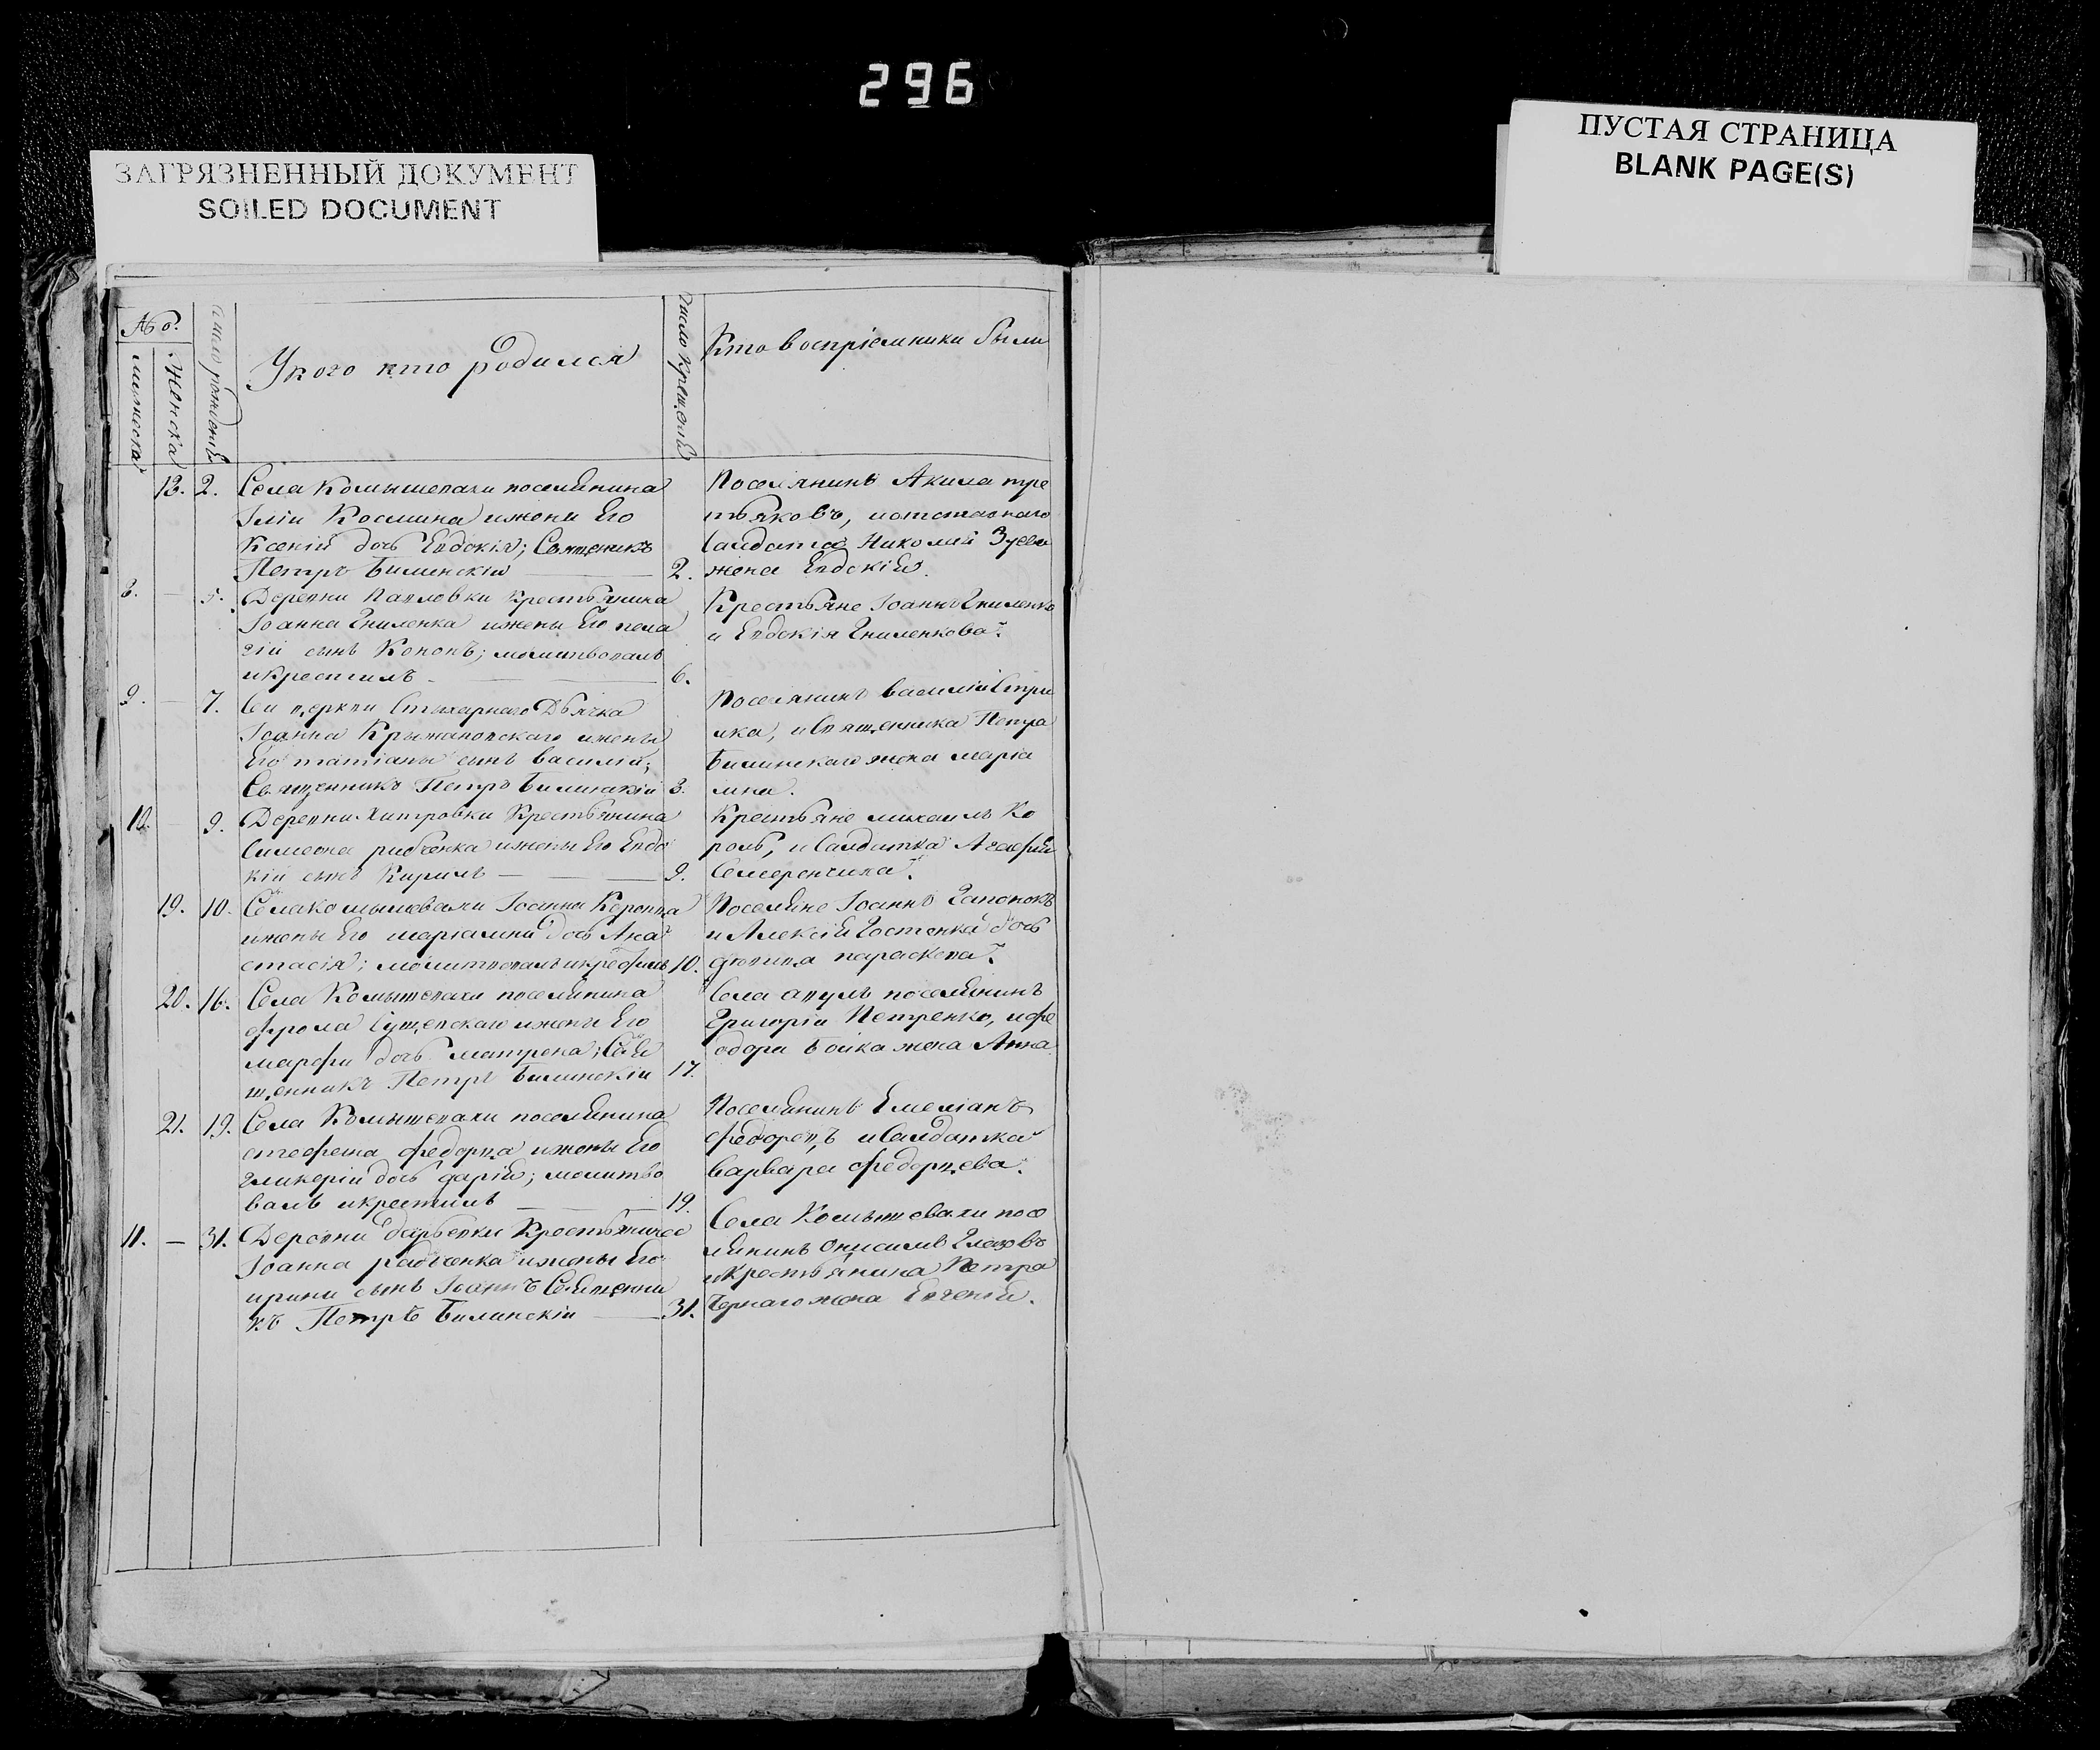 296
ЗАГРЯЗНЕННЫЙ ДОКУМЕНТ
SOILED DOCUMENT
ПУСТАЯ СТРАНИЦА
BLANK PAGE(S)
№ о.
мужеска
Женска
число рождения
У кого кто родился
число крещения
Кто воспріемники были
13. 2. Села Комышевахи поселянина
Іліи Космина и жени Его
Ксеніи дочь Евдокія; Священикъ
Петръ Билинскій 2.
Поселянинъ Акима тре
тьяковъ, и отставнаго
Салдата Николай Зуева
жена Евдокія.
8. — 5. Деревни Павловки крестьянина
Іоанна Гниленка и жены Его пела
гіи сынъ Кононъ; молитвовалъ
и крестилъ 6.
Крестьяне Іоаннъ Гниленко
и Евдокія Гниленкова.
9. — 7. Сей церкви Стихарнаго Дьячка
Іоанна Крыжановскаго и жены
Его татіаны сынъ василій;
Священникъ Петръ Билинскій 8.
Поселянинъ василій Стри
жка, и Священника Петра
Билинскаго жена маріа
мна.
10. — 9. Деревни Хитровки Крестьянина
Симеона рибченка и жены Его Евдо
кіи сынъ Кирилъ 9.
Крестьяне михаилъ Ко
роль, и Салдатка Агафія
19. 10. Села комышевахи Іоанна Коропца
и жены Его маріамни дочь Ана
стасія; молитвовалъ и крестилъ 10.
Поселяне Іоаннъ Гапонокъ
и Алексія Костенка дочь
девица параскева.
20. 16. Села Комышевахи поселянина
фрола Сущевскаго и жены Его
марфи дочь матрена; Свя
щенникъ Петръ Билинскій 17.
Села поселянинъ
Григорій Петренко, и фе
одора Бойка жена Анна
21. 19. Села Комышевахи поселянина
стефана федорца и жены Его
гликеріи дочь дарія; молитво
валъ и крестилъ 19.
Поселянинъ Емеліанъ
федорецъ и Салдатка
варвара федорцева.
11. — 31. Деревни Дарьевки Крестьянина
Іоанна рабченка и жены Его
ирини сынъ Іоаннъ Священни
къ Петръ Билинскій 31.
Села Комышевахи посе
лянинъ Онисимъ Глазовъ
и крестьянина Петра
Чернаго жена Евгенія.